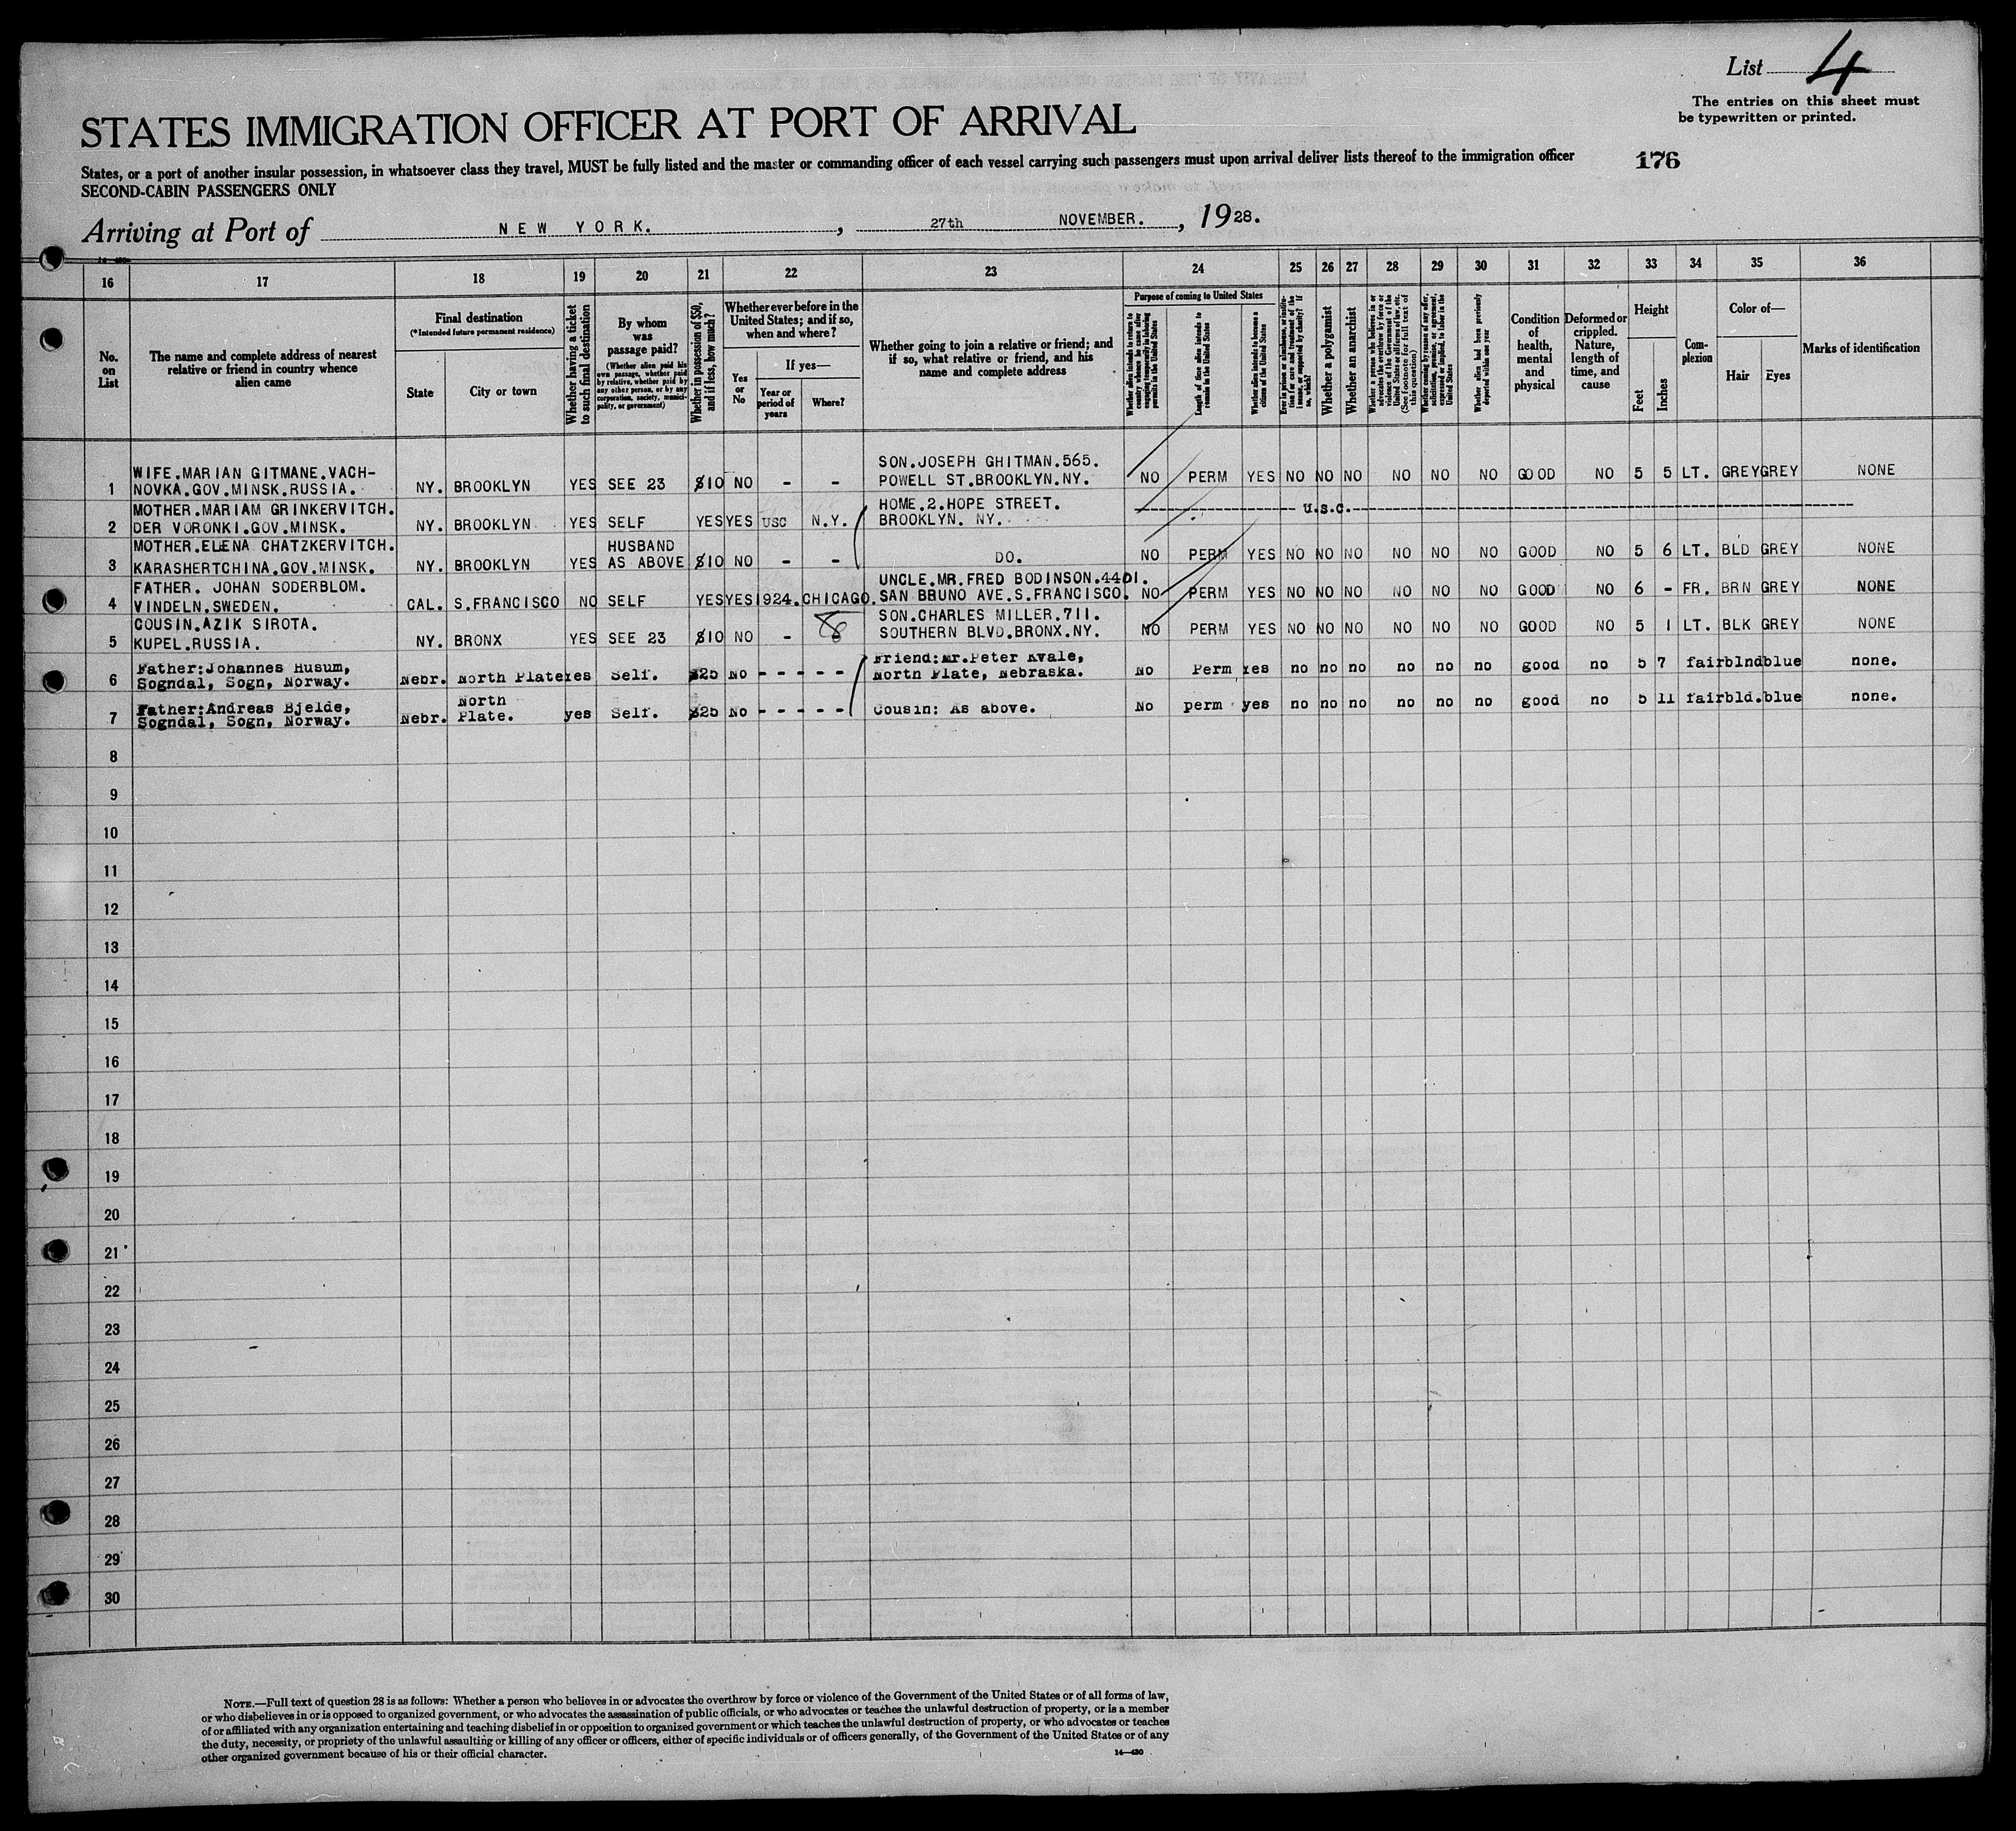 List 4
The entries on this sheet must
be typewritten or printed.
STATES IMMIGRATION OFFICER AT PORT OF ARRIVAL
States, or a port of another insular possession, in whatsoever class they travel, MUST be fully listed and the master or commanding officer of each vessel carrying such passengers must upon arrival deliver lists thereof to the immigration officer
176
SECOND-CABIN PASSENGERS ONLY
Arriving at Port of NEW YORK. , 27th NOVEMBER. , 1928.
16 17 18 19 20 21 22 23 24 25 26 27 28 29 30 31 32 33 34 35 36
No. on List
The name and complete address of nearest
relative or friend in country whence
alien came
Final destination
(*Intended future permanent residence)
State
City or town
Whether having a ticket
to such final destination
By whom
was
passage paid?
(Whether alien paid his
own passage, whether paid
by relative, whether paid by
any other person, or by any
corporation, society, munici-
pality, or government)
Whether in possession of $50,
and if less, how much?
Whether ever before in the
United States; and if so,
when and where?
Yes
or
No
If yes—
Year or
period of
years
Where?
Whether going to join a relative or friend; and
if so, what relative or friend, and his
name and complete address
Purpose of coming to United States
Whether alien intends to return to
country whence he came after
engaging temporarily in laboring
pursuits in the United States
Length of time alien intends to
remain in the United States
Whether alien intends to become a
citizen of the United States
Ever in prison or almshouse, or institu-
tion for care and treatment of the
insane, or supported by charity? If
so, which?
Whether a polygamist
Whether an anarchist
Whether a person who believes in or
advocates the overthrow by force or
violence of the Government of the
United States or all forms of law, etc.
(See footnote for full text of
this question)
Whether coming by reason of any offer,
solicitation, promise, or agreement,
expressed or implied, to labor in the
United States
Whether alien had been previously
deported within one year
Condition
of
health,
mental
and
physical
Deformed or
crippled.
Nature,
length of
time, and
cause
Height
Feet
Inches
Com-
plexion
Color of—
Hair
Eyes
Marks of identification
WIFE.MARIAN GITMANE.VACH- SON.JOSEPH GHITMAN.565.
1 NOVKA.GOV.MINSK.RUSSIA. NY. BROOKLYN YES SEE 23 $10 NO - - POWELL ST.BROOKLYN.NY. NO PERM YES NO NO NO NO NO NO GOOD NO 5 5 LT. GREY GREY NONE
MOTHER.MARIAM GRINKERVITCH. HOME.2.HOPE STREET.
2 DER VORONKI.GOV.MINSK. NY. BROOKLYN YES SELF YES YES USC N.Y. BROOKLYN. NY. U.S.C.
MOTHER.ELENA CHATZKERVITCH. HUSBAND
3 KARASHERTCHINA.GOV.MINSK. NY. BROOKLYN YES AS ABOVE $10 NO - - DO. NO PERM YES NO NO NO NO NO NO GOOD NO 5 6 LT. BLD GREY NONE
FATHER. JOHAN SODERBLOM. UNCLE.MR.FRED BODINSON.4401.
4 VINDELN.SWEDEN. CAL. S.FRANCISCO NO SELF YES YES 1924. CHICAGO. SAN BRUNO AVE.S.FRANCISCO. NO PERM YES NO NO NO NO NO NO GOOD NO 6 - FR. BRN GREY NONE
COUSIN.AZIK SIROTA. SON.CHARLES MILLER.711.
5 KUPEL.RUSSIA. NY. BRONX YES SEE 23 $10 NO - SOUTHERN BLVD.BRONX.NY. NO PERM YES NO NO NO NO NO NO GOOD NO 5 1 LT. BLK GREY NONE
Father:Johannes Husum, Friend:Mr.Peter Kvale,
6 Sogndal, Sogn, Norway. Nebr. North Plate Yes Self. $25 No - - - - - North Plate, Nebraska. No Perm Yes no no no no no no good no 5 7 fair blnd blue none.
Father:Andreas Bjelde, North
7 Sogndal, Sogn, Norway. Nebr. Plate. yes Self. $25 No - - - - - Cousin: As above. No perm yes no no no no no no good no 5 11 fair bld. blue none.
8
9
10
11
12
13
14
15
16
17
18
19
20
21
22
23
24
25
26
27
28
29
30
NOTE.—Full text of question 28 is as follows: Whether a person who believes in or advocates the overthrow by force or violence of the Government of the United States or of all forms of law,
or who disbelieves in or is opposed to organized government, or who advocates the assassination of public officials, or who advocates or teaches the unlawful destruction of property, or is a member
of or affiliated with any organization entertaining and teaching disbelief in or opposition to organized government or which teaches the unlawful destruction of property, or who advocates or teaches
the duty, necessity, or propriety of the unlawful assaulting or killing of any officer or officers, either of specific individuals or of officers generally, of the Government of the United States or of any
other organized government because of his or their official character.
14—430